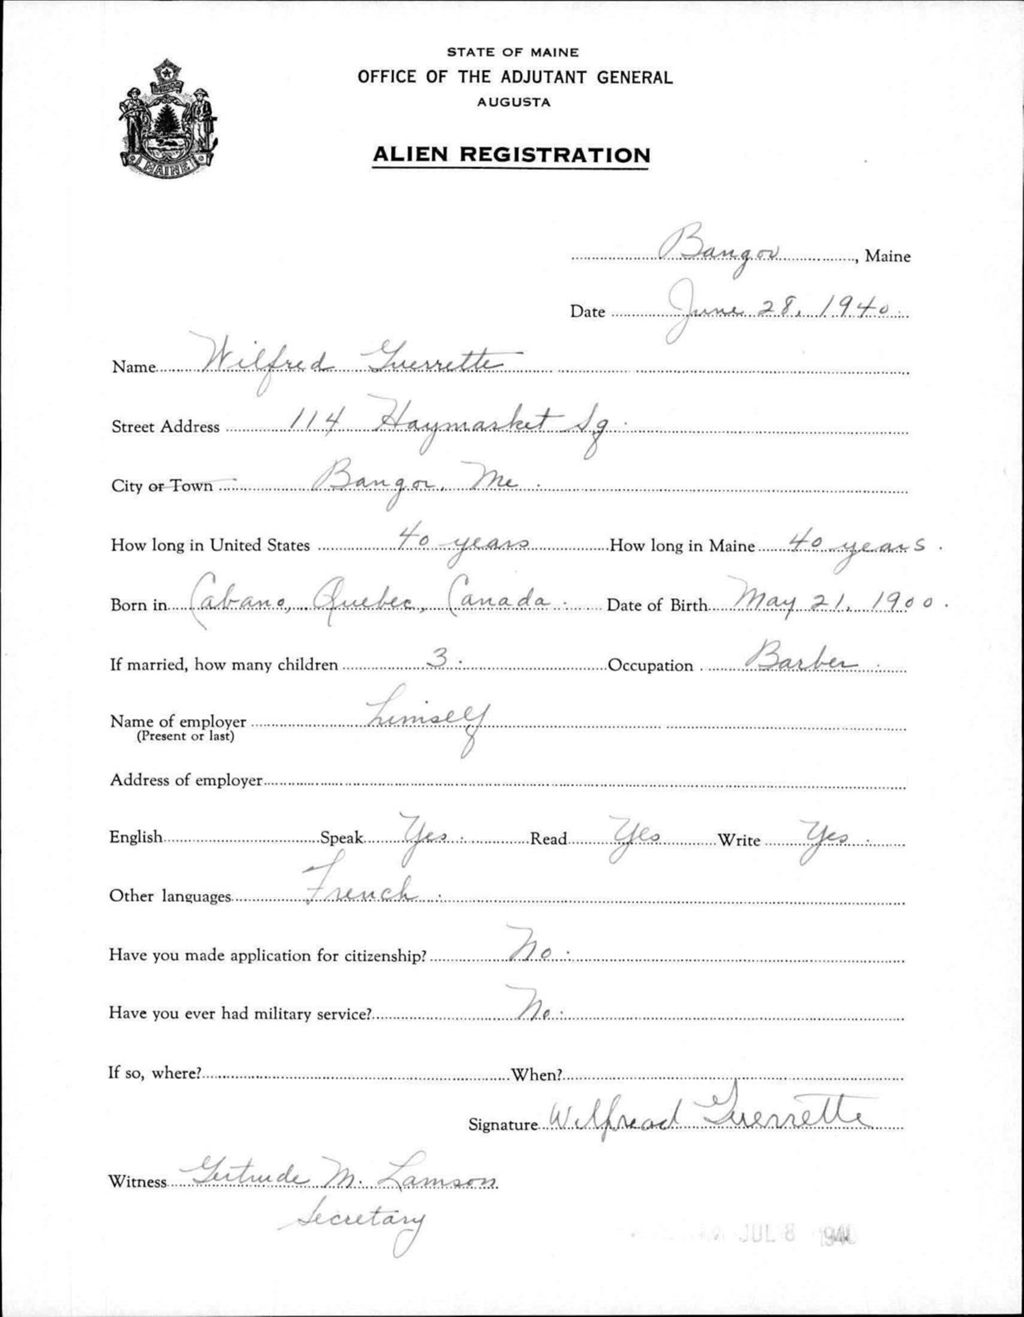 STATE OF MAINE
OFFICE OF THE ADJUTANT GENERAL
AUGUSTA
ALIEN REGISTRATION
MAINE
Bangor, Maine
Date June 28, 1940
Name Wilfred Guerrette
Street Address 114 Haymarket Sq.
City or Town Bangor, Me.
How long in United States 40 years How long in Maine 40 years.
Born in Cabano, Quebec, Canada. Date of Birth May 21, 1900.
If married, how many children 3. Occupation Barber.
Name of employer himself
(Present or last)
Address of employer
English Speak Yes. Read Yes Write Yes.
Other languages French.
Have you made application for citizenship? No.
Have you ever had military service? No.
If so, where? When?
Signature Wilfread Guerrette
Witness Gertrude M. Lamson
Secretary
JUL 8 1940